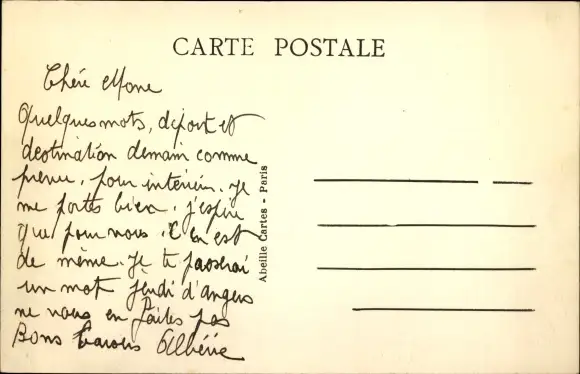 CARTE POSTALE
Chère Mone
Quelques mots, départ et
destination demain comme
prévu, pour intérieur. Je
me portes bien. j'espère
que pour vous il en est
de même. Je te passerai
un mot jeudi d'angers
ne vous en faites pas
Bons Baisers Albérie
Abeille Cartes - Paris